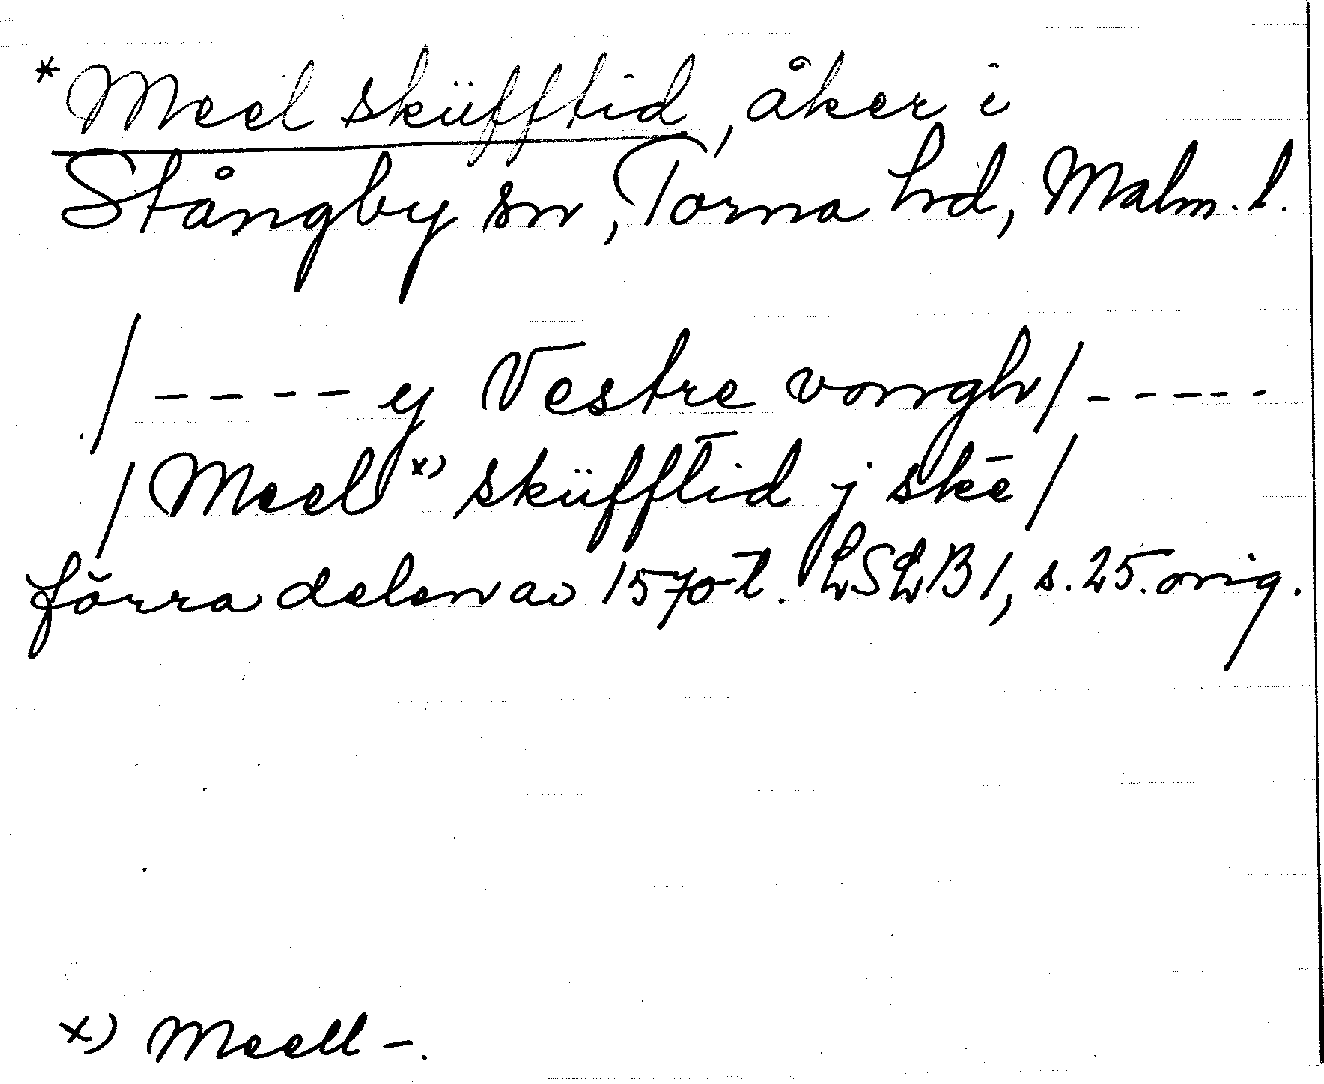 *Meel sküfftid, åker i
Stångby sn, Torna hd, Malm. l.
/ - - - - y Vestre vongh / - - - - -
/ Meel x) sküfftid j skē /
förra delen av 1570-t. LSLB 1, s. 25. orig.
x) Meell -.